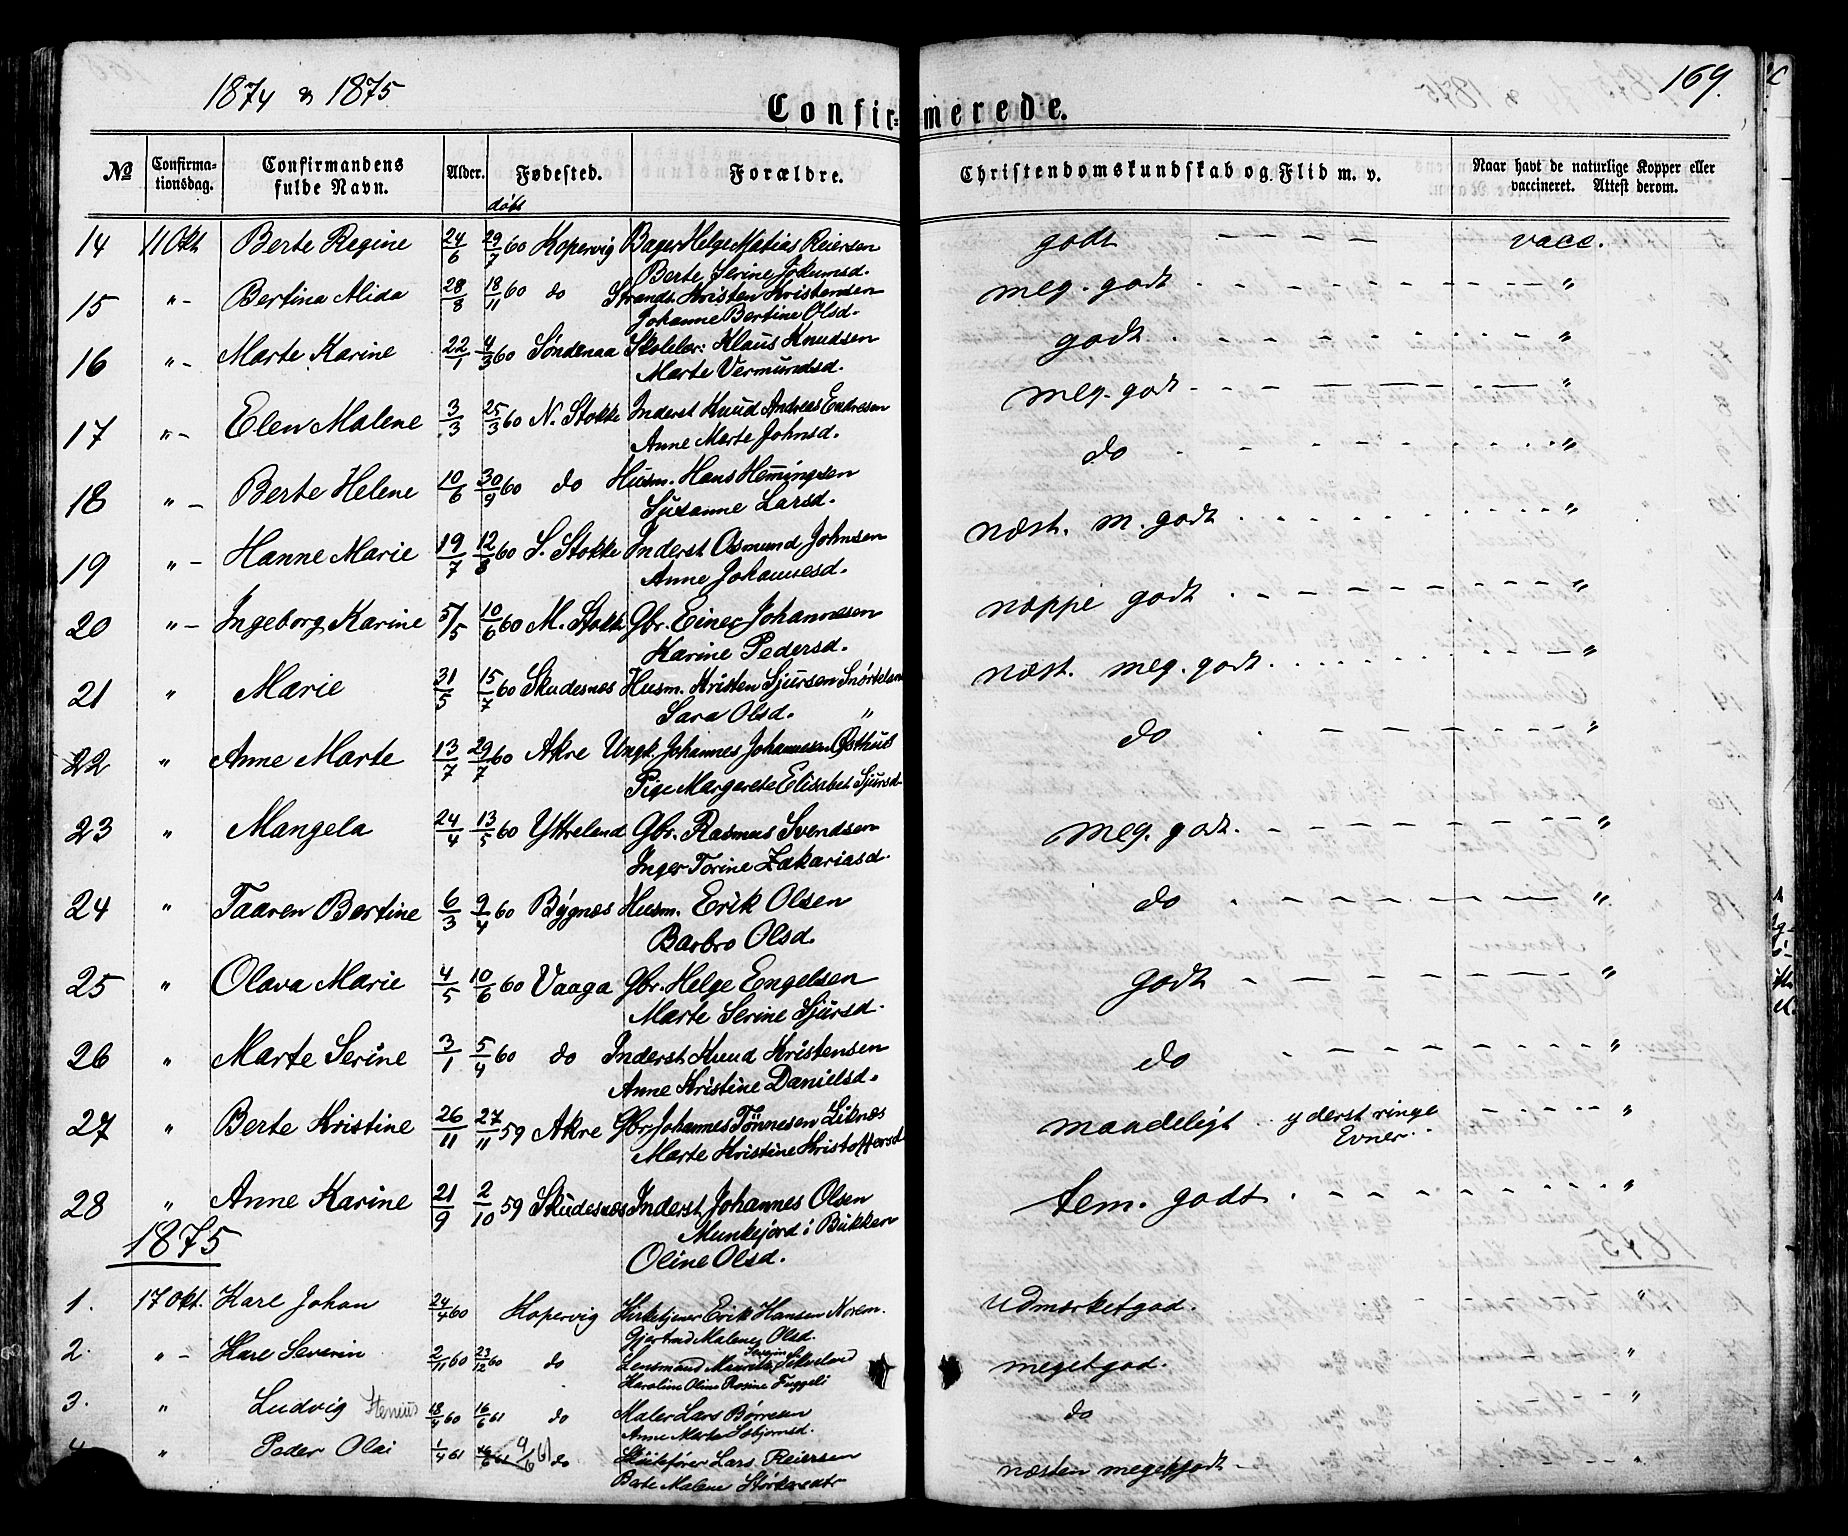 1874 & 1875
169.
Confirmerede.
No Confirmationsdag. Confirmandens fulde Navn. Alder. Fødested. Forældre. Christendomskundskab og Flid m. v. Naar havt de naturlige Kopper eller vaccineret. Attest derom.
døbt
14 11 Okt Berte Regine 24/6 29/7 60 Kopervig Bager Helge Matias Reiersen godt — — — — vacc.
Berte Serine Jokumsd.
15 "- Bertina Alida 28/8 18/11 60 do Strands. Kristen Kristensen meg. godt "
Johanne Bertine Olsd.
16 "- Marte Karine 22/1 4/3 60 Søndenaa Skolelær: Klaus Knudsen godt "
Marte Vermundsd.
17 "- Elen Malene 3/3 25/3 60 N. Stokke Inderst Knud Andreas Endresen meg. godt "
Anne Marte Johnsd.
18 "- Berte Helene 10/6 30/9 60 do Husm. Hans Hemingsen do "
Susanne Larsd.
19 "- Hanne Marie 19/7 12/8 60 S. Stokke Inderst Osmund Johnsen næst. m. godt "
Anne Johannesd.
20 "- Ingeborg Karine 5/5 10/6 60 M. Stokk Gbr. Einer Johannesen nøppe godt "
Karine Pedersd.
21 " Marie 31/5 15/7 60 Skudesnæs Husm. Kristen Sjursen Snørtelan næst. meg. godt "
Sara Olsd. "
22 " Anne Marte 13/7 29/7 60 Akre Ungk. Johannes Johannesen Østhus do "
Pige Margarete Elisabet Sjursd.
23 " Mangela 24/4 13/5 60 Ytreland Gbr. Rasmus Svendsen meg. godt. "
Inger Torine Zakariasd.
24 " Taaren Bertine 6/3 9/4 60 Bygnes Husm. Erik Olsen do "
Barbro Olsd.
25 " Olava Marie 4/5 10/6 60 Vaaga Gbr. Helge Engelsen godt "
Marte Serine Sjursd.
26 " Marte Serine 3/1 5/4 60 do Inderst Knud Kristensen do "
Anne Kristine Danielsd.
27 " Berte Kristine 26/11 27/11 59 Akre Gbr. Johannes Tønnesen Liknæs maadeligt yderst ringe "
Marte Kristine Kristoffersd Evner.
28 " Anne Karine 21/9 2/10 59 Skudesnæs Inderst Johannes Olsen tem. godt "
Munkejord i Bukken
Oline Olsd.
1875
1. 17 Okt. Karl Johan 24/4 60 Kopervig Kirketjener Erik Hansen Norem. udmærket god. "
Gjertrud Malene Olsd.
2. "- Karl Severin 2/11 60 23/12 60 do Lensmand Maurits Severin Sikveland meget god. "
Karoline Oline Rosine Fuggeli
3. " Ludvig Stenius 18/4 60 16/6 61 do Maler Lars Børresen do "
Anne Marte Asbjørnsd.
4. " Peder Olai 1/4 61 16/6 61 9/6 61 do Skuitefører Lars Reiersen næsten meget godt "
Berte Malene Størkersdtr